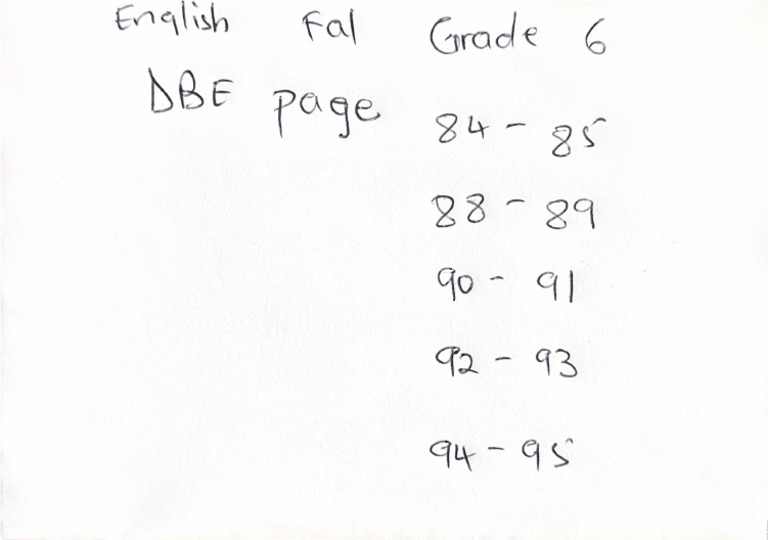 English Fal Grade 6
DBE page 84 - 85
88 - 89
90 - 91
92 - 93
94 - 95